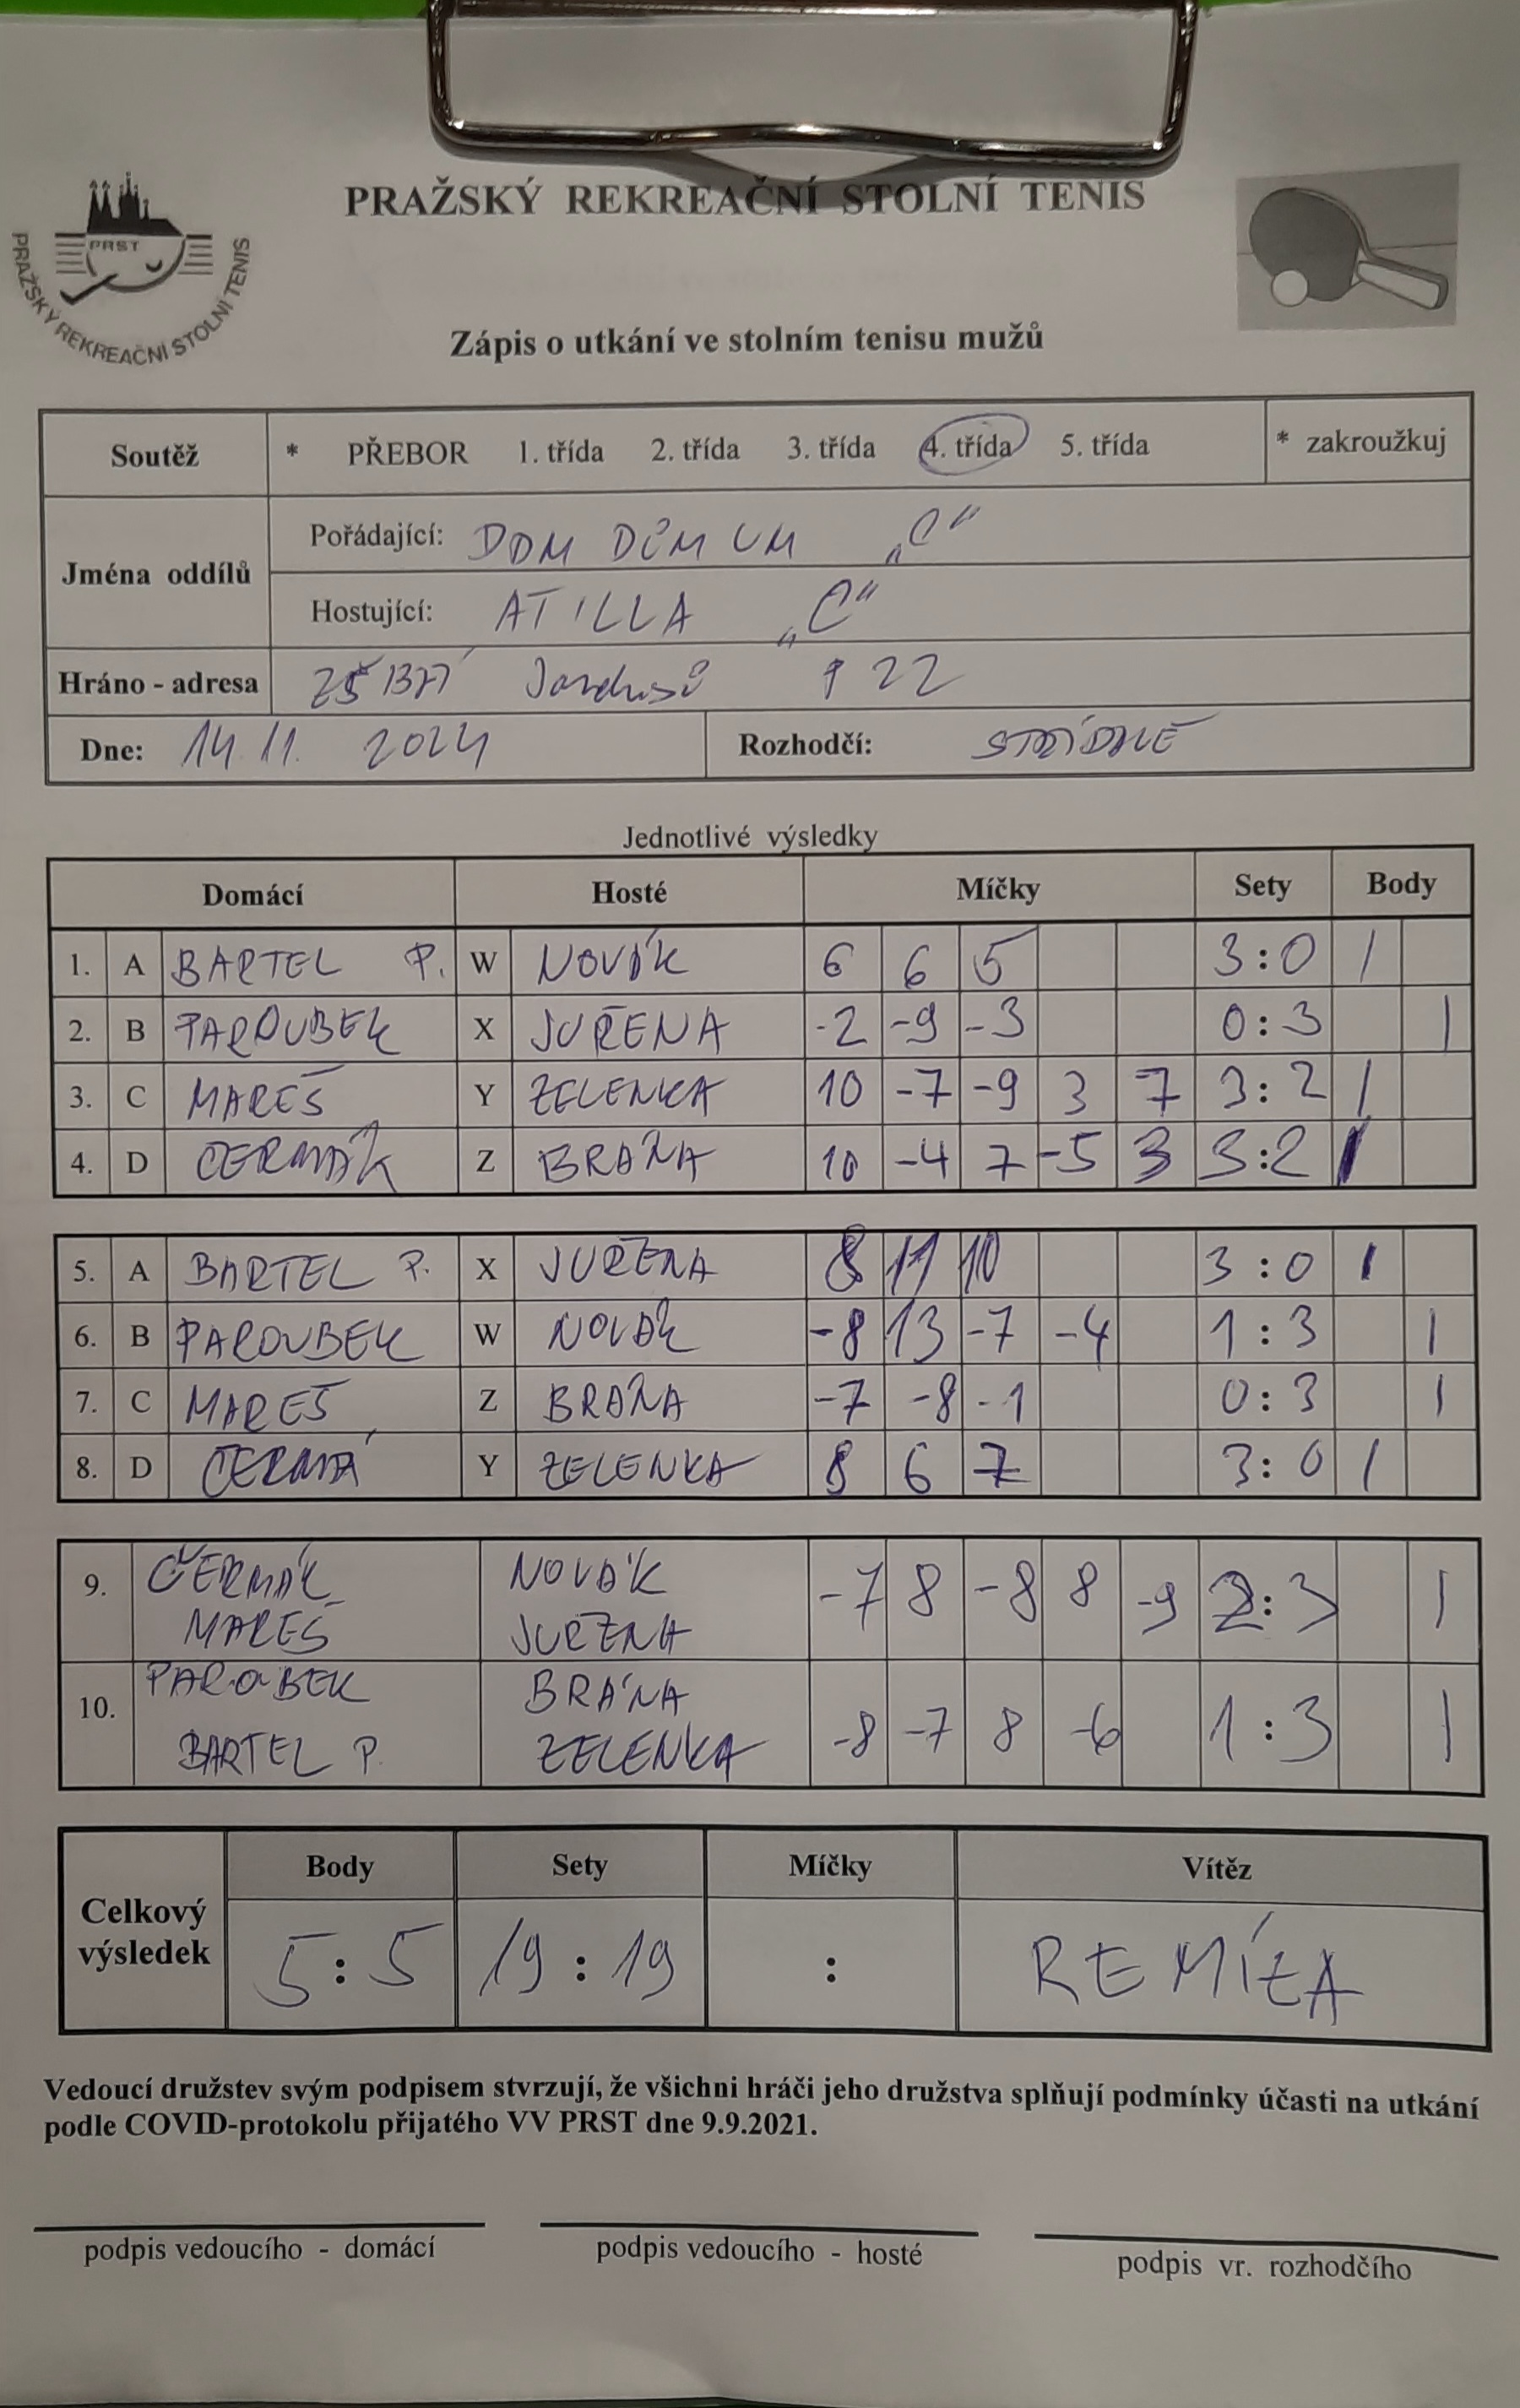 PRAŽSKÝ REKREAČNÍ STOLNÍ TENIS
PRST
PRAŽSKÝ REKREAČNÍ STOLNÍ TENIS
Zápis o utkání ve stolním tenisu mužů
Soutěž * PŘEBOR 1. třída 2. třída 3. třída 4. třída 5. třída * zakroužkuj
Jména oddílů
Pořádající: DOM DŮM UM „C“
Hostující: ATILLA „C“
Hráno - adresa ZŠ BŘÍ Jandusů P 22
Dne: 14. 11. 2024 Rozhodčí: STŘÍDAVĚ
Jednotlivé výsledky
Domácí Hosté Míčky Sety Body
1. A BARTEL P. W NOVÁK 6 6 5 3:0 1
2. B PAROUBEK X JUŘENA -2 -9 -3 0:3 1
3. C MAREŠ Y ZELENKA 10 -7 -9 3 7 3:2 1
4. D ČERMÁK Z BRÁNA 10 -4 7 -5 3 3:2 1
5. A BARTEL P. X JUŘENA 8 11 10 3:0 1
6. B PAROUBEK W NOVÁK -8 13 -7 -4 1:3 1
7. C MAREŠ Z BRÁNA -7 -8 -1 0:3 1
8. D ČERMÁ Y ZELENKA 8 6 7 3:0 1
9. ČERMÁK NOVÁK -7 8 -8 8 -9 2:3 1
MAREŠ JUŘENA
10. PAROUBEK BRÁNA -8 -7 8 -6 1:3 1
BARTEL P. ZELENKA
Celkový výsledek
Body Sety Míčky Vítěz
5:5 19:19 : REMÍZA
Vedoucí družstev svým podpisem stvrzují, že všichni hráči jeho družstva splňují podmínky účasti na utkání
podle COVID-protokolu přijatého VV PRST dne 9.9.2021.
podpis vedoucího - domácí podpis vedoucího - hosté podpis vr. rozhodčího